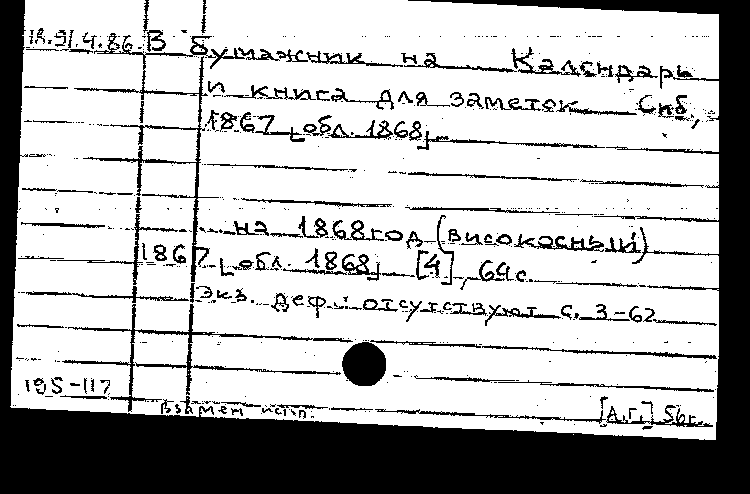 18.91.4.86. В бумажник на Календарь
и книга для заметок Спб,
1867 [обл. 1868].
на 1868 год (високосный)
1867 [обл. 1868] [4], 64 с.
Экз. деф.: отсутствуют с. 3-62
195-117
Взамен испр. [А.Г.] 56г.